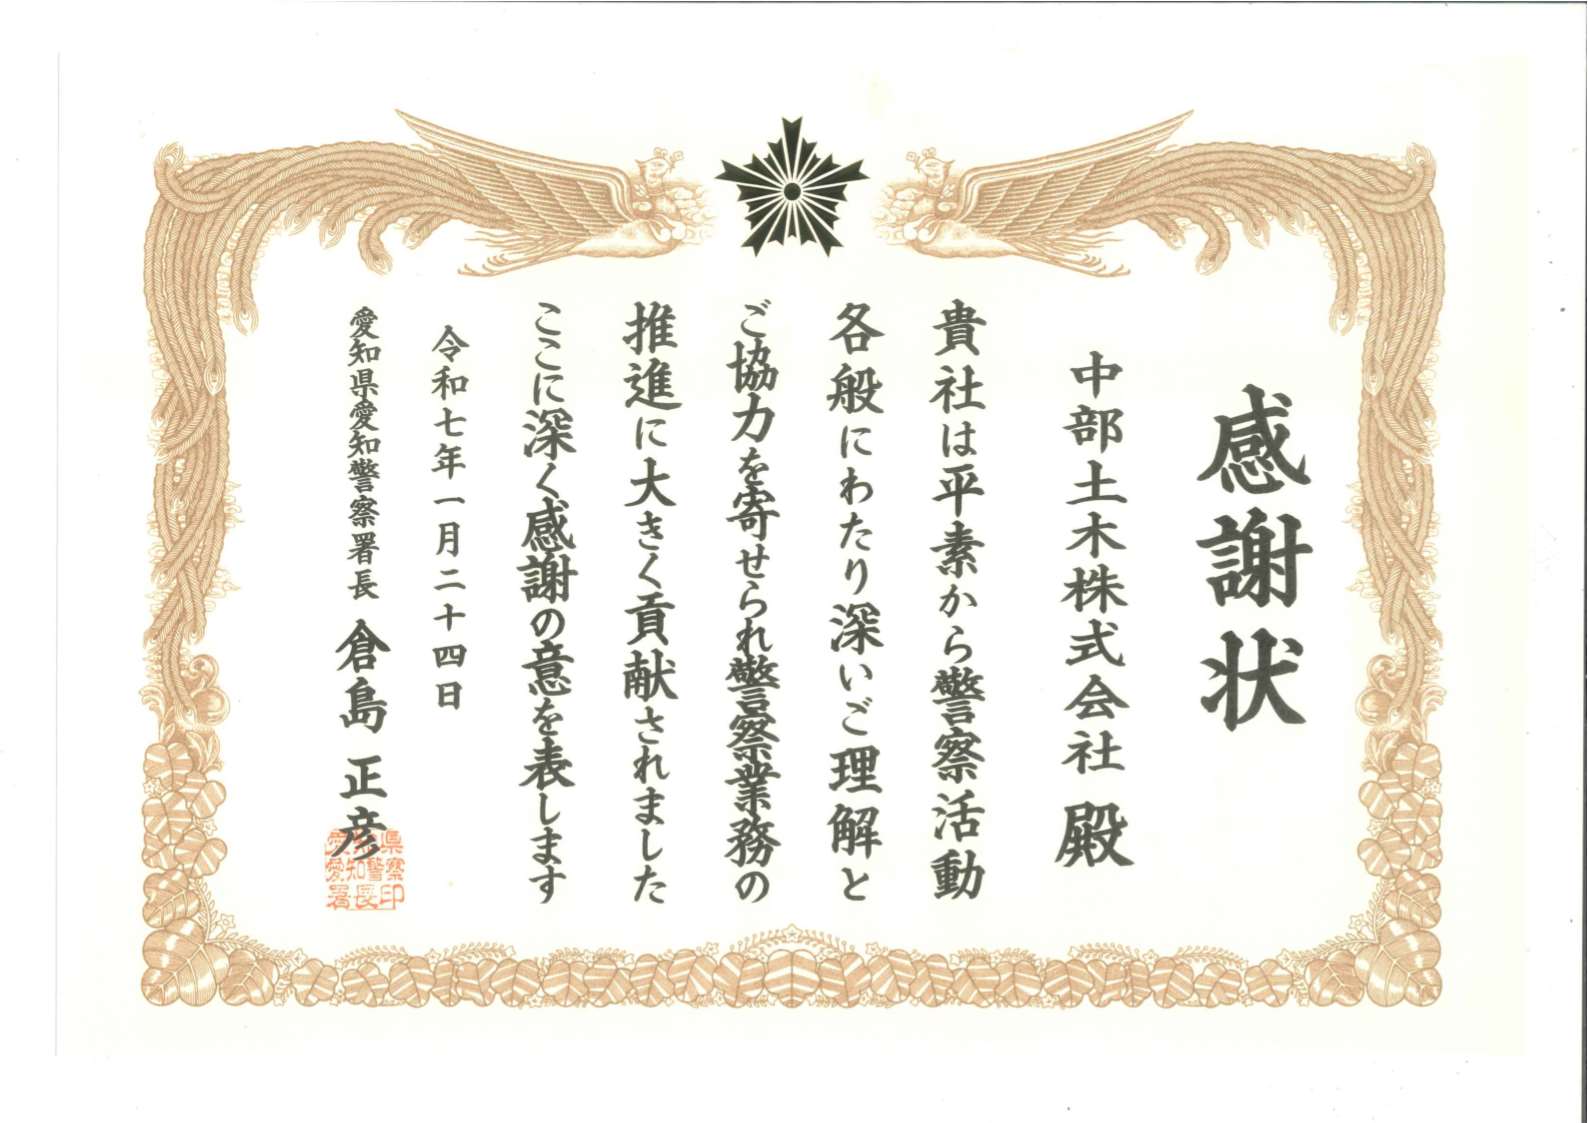 感謝状
中部土木株式会社 殿
貴社は平素から警察活動
各般にわたり深いご理解と
ご協力を寄せられ警察業務の
推進に大きく貢献されました
ここに深く感謝の意を表します
令和七年一月二十四日
愛知県愛知警察署長 倉島 正彦
愛知県
愛知警察
署長印